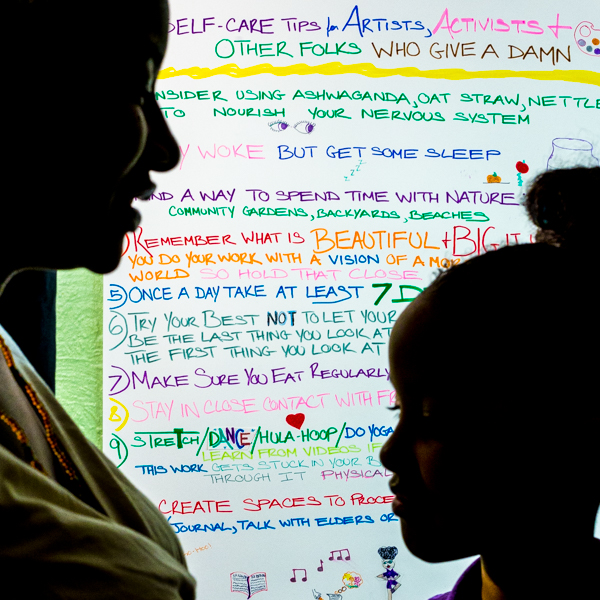 SELF-CARE TIPS for ARTISTS, ACTIVISTS +
OTHER FOLKS WHO GIVE A DAMN
CONSIDER USING ASHWAGANDA, OAT STRAW, NETTLE
TO NOURISH YOUR NERVOUS SYSTEM
WOKE BUT GET SOME SLEEP
zzz
A WAY TO SPEND TIME WITH NATURE
COMMUNITY GARDENS, BACKYARDS, BEACHES
REMEMBER WHAT IS BEAUTIFUL + BIG
YOU DO YOUR WORK WITH A VISION OF A MOR
WORLD SO HOLD THAT CLOSE
5) ONCE A DAY TAKE AT LEAST 7 D
6) TRY YOUR BEST NOT TO LET YOUR
BE THE LAST THING YOU LOOK AT
THE FIRST THING YOU LOOK AT
7) MAKE SURE YOU EAT REGULARLY
8) STAY IN CLOSE CONTACT WITH FR
9) STRETCH/DANCE/HULA-HOOP/DO YOGA
LEARN FROM VIDEOS IF
THIS WORK GETS STUCK IN YOUR B
THROUGH IT PHYSICAL
CREATE SPACES TO PROCE
JOURNAL, TALK WITH ELDERS OR